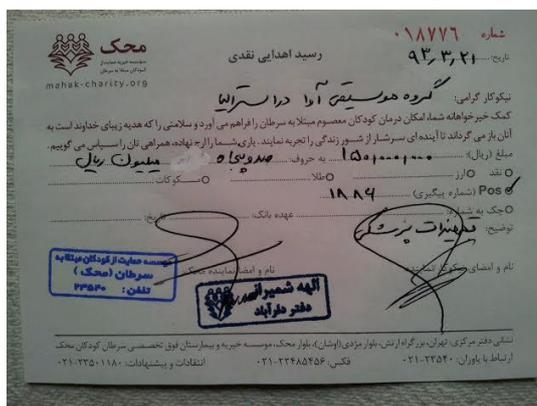 شماره ۰۱۸۷۷۶
محک
رسید اهدایی نقدی
تاریخ: ۹۳٫۳٫۲۱
موسسه خیریه حمایت از
کودکان مبتلا به سرطان
mahak-charity.org
نیکوکار گرامی: گروه موسیقی آوا در استرالیا
کمک خیرخواهانه شما، امکان درمان کودکان معصوم مبتلا به سرطان را فراهم می آورد و سلامتی را که هدیه زیبای خداوند است به
آنان باز می گرداند تا آینده ای سرشار از شور زندگی را تجربه نمایند. یاری شما را ارج نهاده، همراهی تان را سپاس می گوییم.
مبلغ (ریال): ۱۵۰٫۰۰۰٫۰۰۰ به حروف: صد و پنجاه میلیون ریال
نقد ارز طلا مسکوکات
Pos (شماره پیگیری) ۱۸۸۶
چک به شماره: عهده بانک: تاریخ:
توضیح: تجهیزات پزشکی
نام و امضای نیکوکار / نماینده نام و امضا نماینده محک
موسسه حمایت از کودکان مبتلا به
سرطان (محک)
تلفن: ۲۳۵۴۰
الهه شمیرانی
دفتر دارآباد
نشانی دفتر مرکزی: تهران، بزرگراه ارتش، بلوار مژدی (اوشان)، بلوار محک، موسسه خیریه و بیمارستان فوق تخصصی سرطان کودکان محک
ارتباط با یاوران: ۲۳۵۴۰-۰۲۱ فکس: ۲۲۴۸۵۴۵۶-۰۲۱ انتقادات و پیشنهادات: ۲۳۵۰۱۱۸۰-۰۲۱